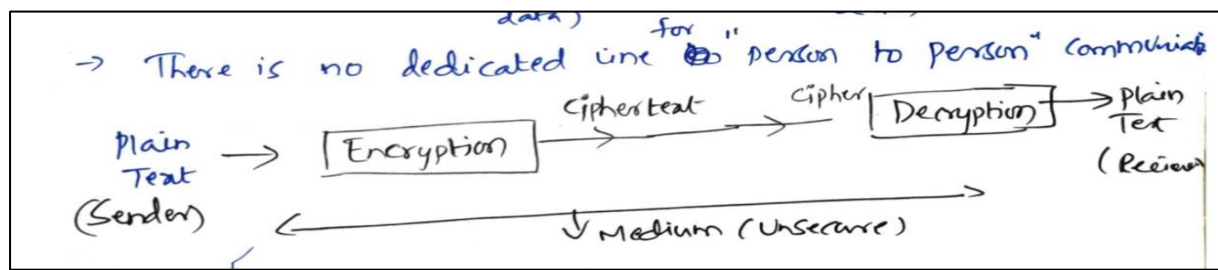 data)
→ There is no dedicated line for "person to person" communica
Plain Text (Sender) → Encryption Ciphertext → Cipher Decryption → Plain Text (Reciever
↓ Medium (Unsecure)